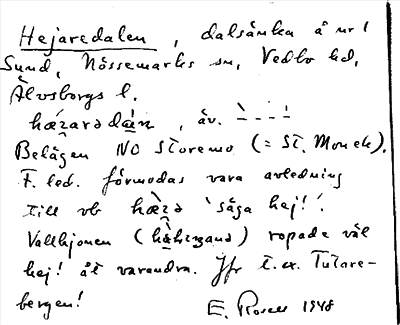 Hejaredalen, dalsänka å nr 1
Sund, Nössemarks sn, Vedbo hd,
Älvsborgs l.
, äv.
Belägen NO Storemo (= St. Monek).
F. led. förmodas vara avledning
till vb hæ̀jǝ 'säga hej!'.
Vallhjonen ropade väl
hej! åt varandra. Jfr t.ex. Tutare-
bergen!
E. Rosell 1948